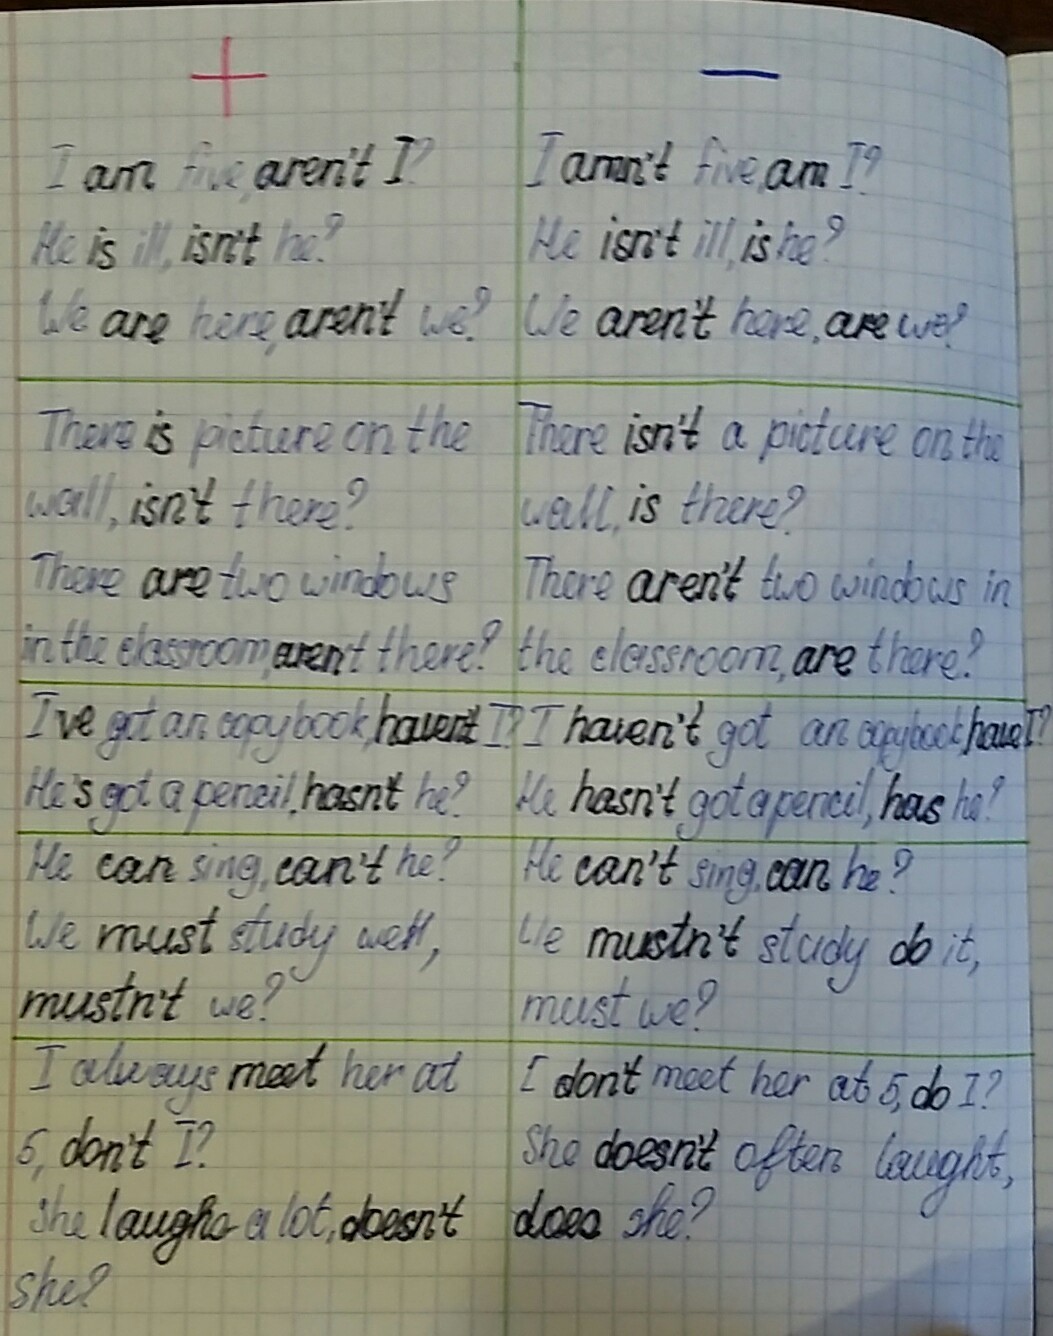 +
−
I am five, aren't I?
He is ill, isn't he?
We are here, aren't we?
I amn't five, am I?
He isn't ill, is he?
We aren't here, are we?
There is picture on the
wall, isn't there?
There are two windows
in the classroom, aren't there?
There isn't a picture on the
wall, is there?
There aren't two windows in
the classroom, are there?
I've got an copybook, haven't I?
He's got a pencil, hasn't he?
I haven't got an copybook, have I?
He hasn't got a pencil, has he?
He can sing, can't he?
We must study well,
mustn't we?
He can't sing, can he?
We mustn't study do it,
must we?
I always meet her at
5, don't I?
She laughs a lot, doesn't
she?
I don't meet her at 5, do I?
She doesn't often laught,
does she?